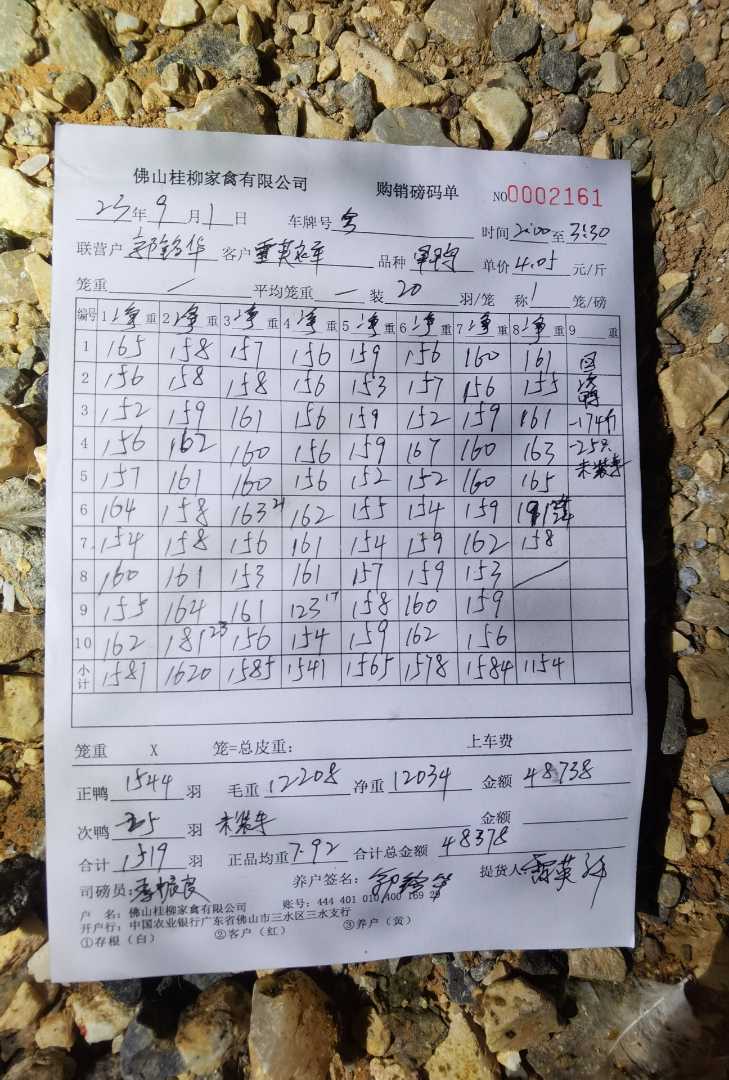 佛山桂柳家禽有限公司 购销磅码单 NO0002161
23年9月1日 车牌号 时间2:00至3:30
联营户 客户 品种 单价4.05元/斤
笼重/ 平均笼重— 装20羽/笼 称1笼/磅
编号 1净重 2净重 3净重 4净重 5净重 6净重 7净重 8净重 9重
1 165 158 157 156 159 156 160 161
2 156 158 158 156 153 157 156 155
3 152 159 161 156 159 152 159 161 -174斤
4 156 162 160 156 159 167 160 163 -25只
5 157 161 160 156 152 152 160 165 未装车
6 164 158 163 21 162 155 154 159
7 154 158 156 161 154 159 162 158
8 160 161 153 161 157 159 153 /
9 155 164 161 123 17 158 160 159
10 162 181 23 156 154 159 162 156
小计 1581 1620 1585 1541 1565 1578 1584 1154
笼重 X 笼=总皮重: 上车费
正鸭1544羽 毛重12208 净重12034 金额48738
次鸭25羽 未装车 金额
合计1519羽 正品均重7.92 合计总金额48378
司磅员: 养户签名: 提货人
户 名: 佛山桂柳家禽有限公司 账号: 444 401 010 400 169 29
开户行: 中国农业银行广东省佛山市三水区三水支行
①存根(白) ②客户(红) ③养户(黄)